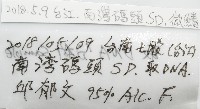 2018.5.9 台江. 南灣碼頭 SD.
2018/05/09 台南七股(台江)
南灣碼頭 SD. 取DNA.
邱郁文 95% Alc.